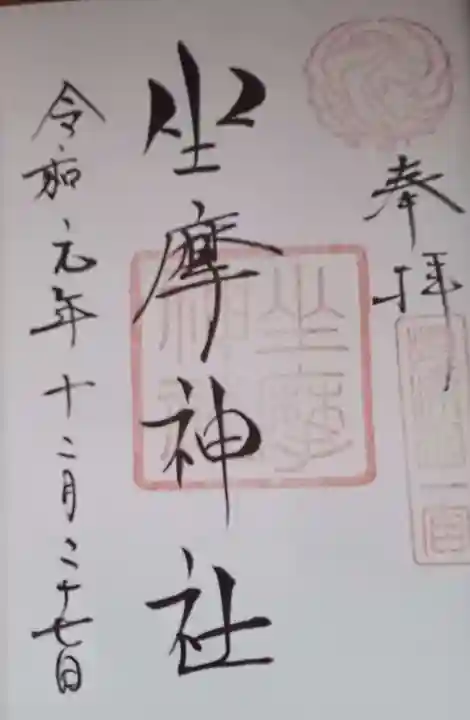 奉拝
坐摩神社
坐摩神社
令和元年十二月二十七日